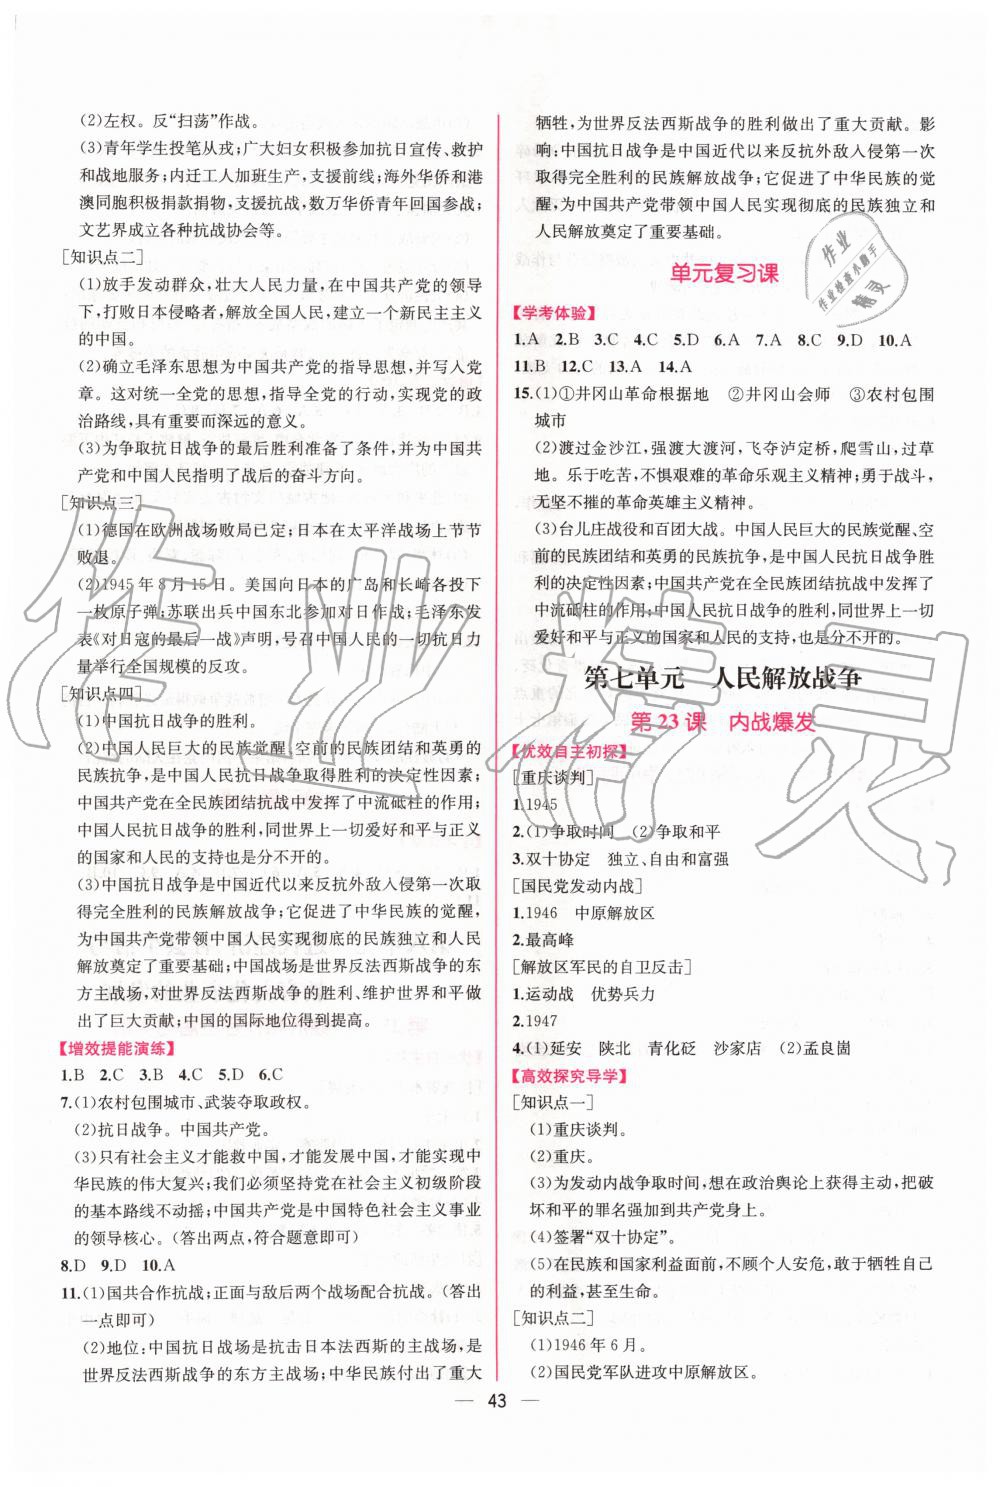 (2)左权。反“扫荡”作战。
(3)青年学生投笔从戎;广大妇女积极参加抗日宣传、救护
和战地服务;内迁工人加班生产,支援前线;海外华侨和港
澳同胞积极捐款捐物,支援抗战,数万华侨青年回国参战;
文艺界成立各种抗战协会等。
[知识点二]
(1)放手发动群众,壮大人民力量,在中国共产党的领导
下,打败日本侵略者,解放全国人民,建立一个新民主主义
的中国。
(2)确立毛泽东思想为中国共产党的指导思想,并写入党
章。这对统一全党的思想,指导全党的行动,实现党的政
治路线,具有重要而深远的意义。
(3)为争取抗日战争的最后胜利准备了条件,并为中国共
产党和中国人民指明了战后的奋斗方向。
[知识点三]
(1)德国在欧洲战场败局已定;日本在太平洋战场上节节
败退。
(2)1945年8月15日。美国向日本的广岛和长崎各投下
一枚原子弹;苏联出兵中国东北参加对日作战;毛泽东发
表《对日寇的最后一战》声明,号召中国人民的一切抗日力
量举行全国规模的反攻。
[知识点四]
(1)中国抗日战争的胜利。
(2)中国人民巨大的民族觉醒、空前的民族团结和英勇的
民族抗争,是中国人民抗日战争取得胜利的决定性因素;
中国共产党在全民族团结抗战中发挥了中流砥柱的作用;
中国人民抗日战争的胜利,同世界上一切爱好和平与正义
的国家和人民的支持也是分不开的。
(3)中国抗日战争是中国近代以来反抗外敌入侵第一次取
得完全胜利的民族解放战争;它促进了中华民族的觉醒,
为中国共产党带领中国人民实现彻底的民族独立和人民
解放奠定了重要基础;中国战场是世界反法西斯战争的东
方主战场,对世界反法西斯战争的胜利、维护世界和平做
出了巨大贡献;中国的国际地位得到提高。
【增效提能演练】
1.B 2.C 3.B 4.C 5.D 6.C
7.(1)农村包围城市、武装夺取政权。
(2)抗日战争。中国共产党。
(3)只有社会主义才能救中国,才能发展中国,才能实现中
华民族的伟大复兴;我们必须坚持党在社会主义初级阶段
的基本路线不动摇;中国共产党是中国特色社会主义事业
的领导核心。(答出两点,符合题意即可)
8.D 9.D 10.A
11.(1)国共合作抗战;正面与敌后两个战场配合抗战。(答出
一点即可)
(2)地位:中国抗日战场是抗击日本法西斯的主战场,是
世界反法西斯战争的东方主战场;中华民族付出了重大
牺牲,为世界反法西斯战争的胜利做出了重大贡献。影
响:中国抗日战争是中国近代以来反抗外敌入侵第一次
取得完全胜利的民族解放战争;它促进了中华民族的觉
醒,为中国共产党带领中国人民实现彻底的民族独立和
人民解放奠定了重要基础。
单元复习课
【学考体验】
1.A 2.B 3.C 4.C 5.D 6.A 7.A 8.C 9.D 10.A
11.B 12.C 13.A 14.A
15.(1)①井冈山革命根据地 ②井冈山会师 ③农村包围
城市
(2)渡过金沙江,强渡大渡河,飞夺泸定桥,爬雪山,过草
地。乐于吃苦,不惧艰难的革命乐观主义精神;勇于战斗,
无坚不摧的革命英雄主义精神。
(3)台儿庄战役和百团大战。中国人民巨大的民族觉醒、空
前的民族团结和英勇的民族抗争,是中国人民抗日战争胜
利的决定性因素;中国共产党在全民族团结抗战中发挥了
中流砥柱的作用;中国人民抗日战争的胜利,同世界上一切
爱好和平与正义的国家和人民的支持,也是分不开的。
第七单元 人民解放战争
第23课 内战爆发
【优效自主初探】
[重庆谈判]
1.1945
2.(1)争取时间 (2)争取和平
3.双十协定 独立、自由和富强
[国民党发动内战]
1.1946 中原解放区
2.最高峰
[解放区军民的自卫反击]
1.运动战 优势兵力
2.1947
4.(1)延安 陕北 青化砭 沙家店 (2)孟良崮
【高效探究导学】
[知识点一]
(1)重庆谈判。
(2)重庆。
(3)为发动内战争取时间,想在政治舆论上获得主动,把破
坏和平的罪名强加到共产党身上。
(4)签署“双十协定”。
(5)在民族和国家利益面前,不顾个人安危,敢于牺牲自己
的利益,甚至生命。
[知识点二]
(1)1946年6月。
(2)国民党军队进攻中原解放区。
— 43 —
作业精灵
作业
作业检查小助手
精灵